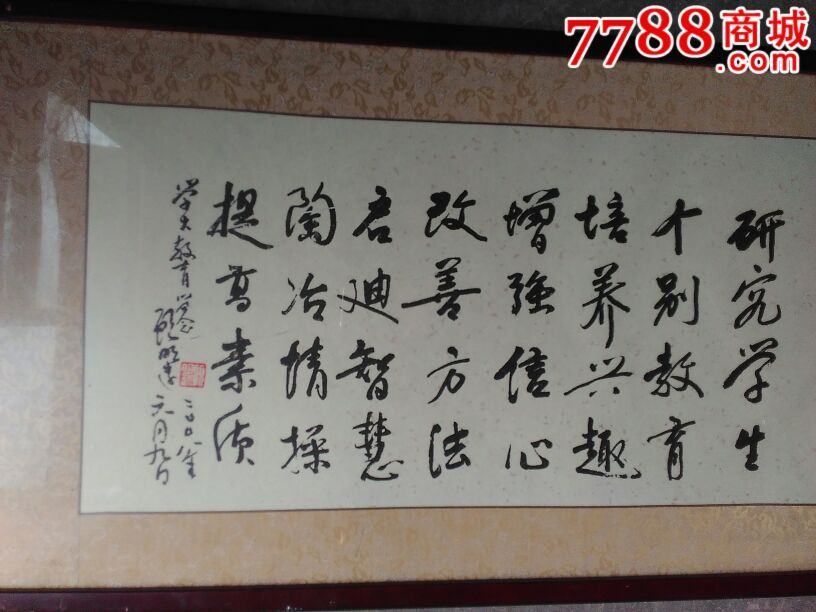 7788商城
研究学生
个别教育
培养兴趣
增强信心
改善方法
启迪智慧
陶冶情操
提高素质
学大教育
顾明远
二〇〇八年
六月九日